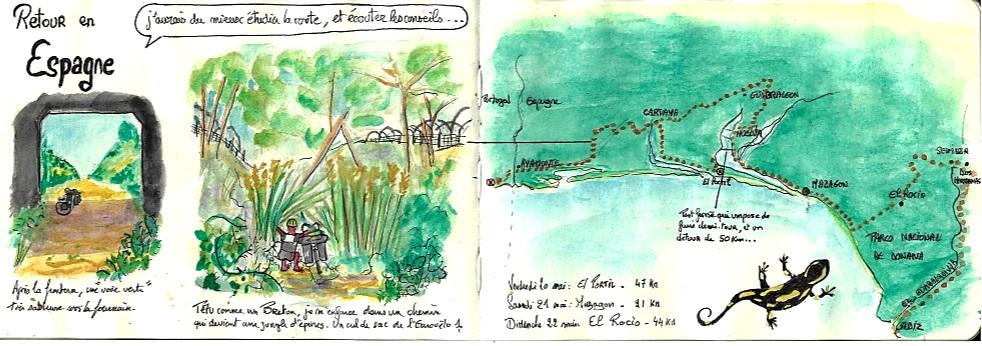 Retour en
Espagne
j'aurais du mieux étudier la carte, et écouter les conseils...
Après la frontera, une voie verte
très sableuse vers la
Têtu comme un Breton, je m'enfonce dans un chemin
qui devient une jungle d'épines. Un cul de sac de l'Eurovélo 1
Portugal
Espagne
AYAMONTE
CARTAYA
GIBRALEON
HUELVA
El Portil
MAZAGON
SEVILLA
DOS HERMANAS
EL ROCIO
PARQ NACIONAL
DE DONANA
EL GUADALQUIVIR
CADIZ
Pont fermé qui impose de
faire demi-tour, et un
détour de 50 Km...
Vendredi 20 mai : El Portil - 47 Km
Samedi 21 mai : Mazagon - 91 Km
Dimanche 22 mai El Rocio - 44 Km